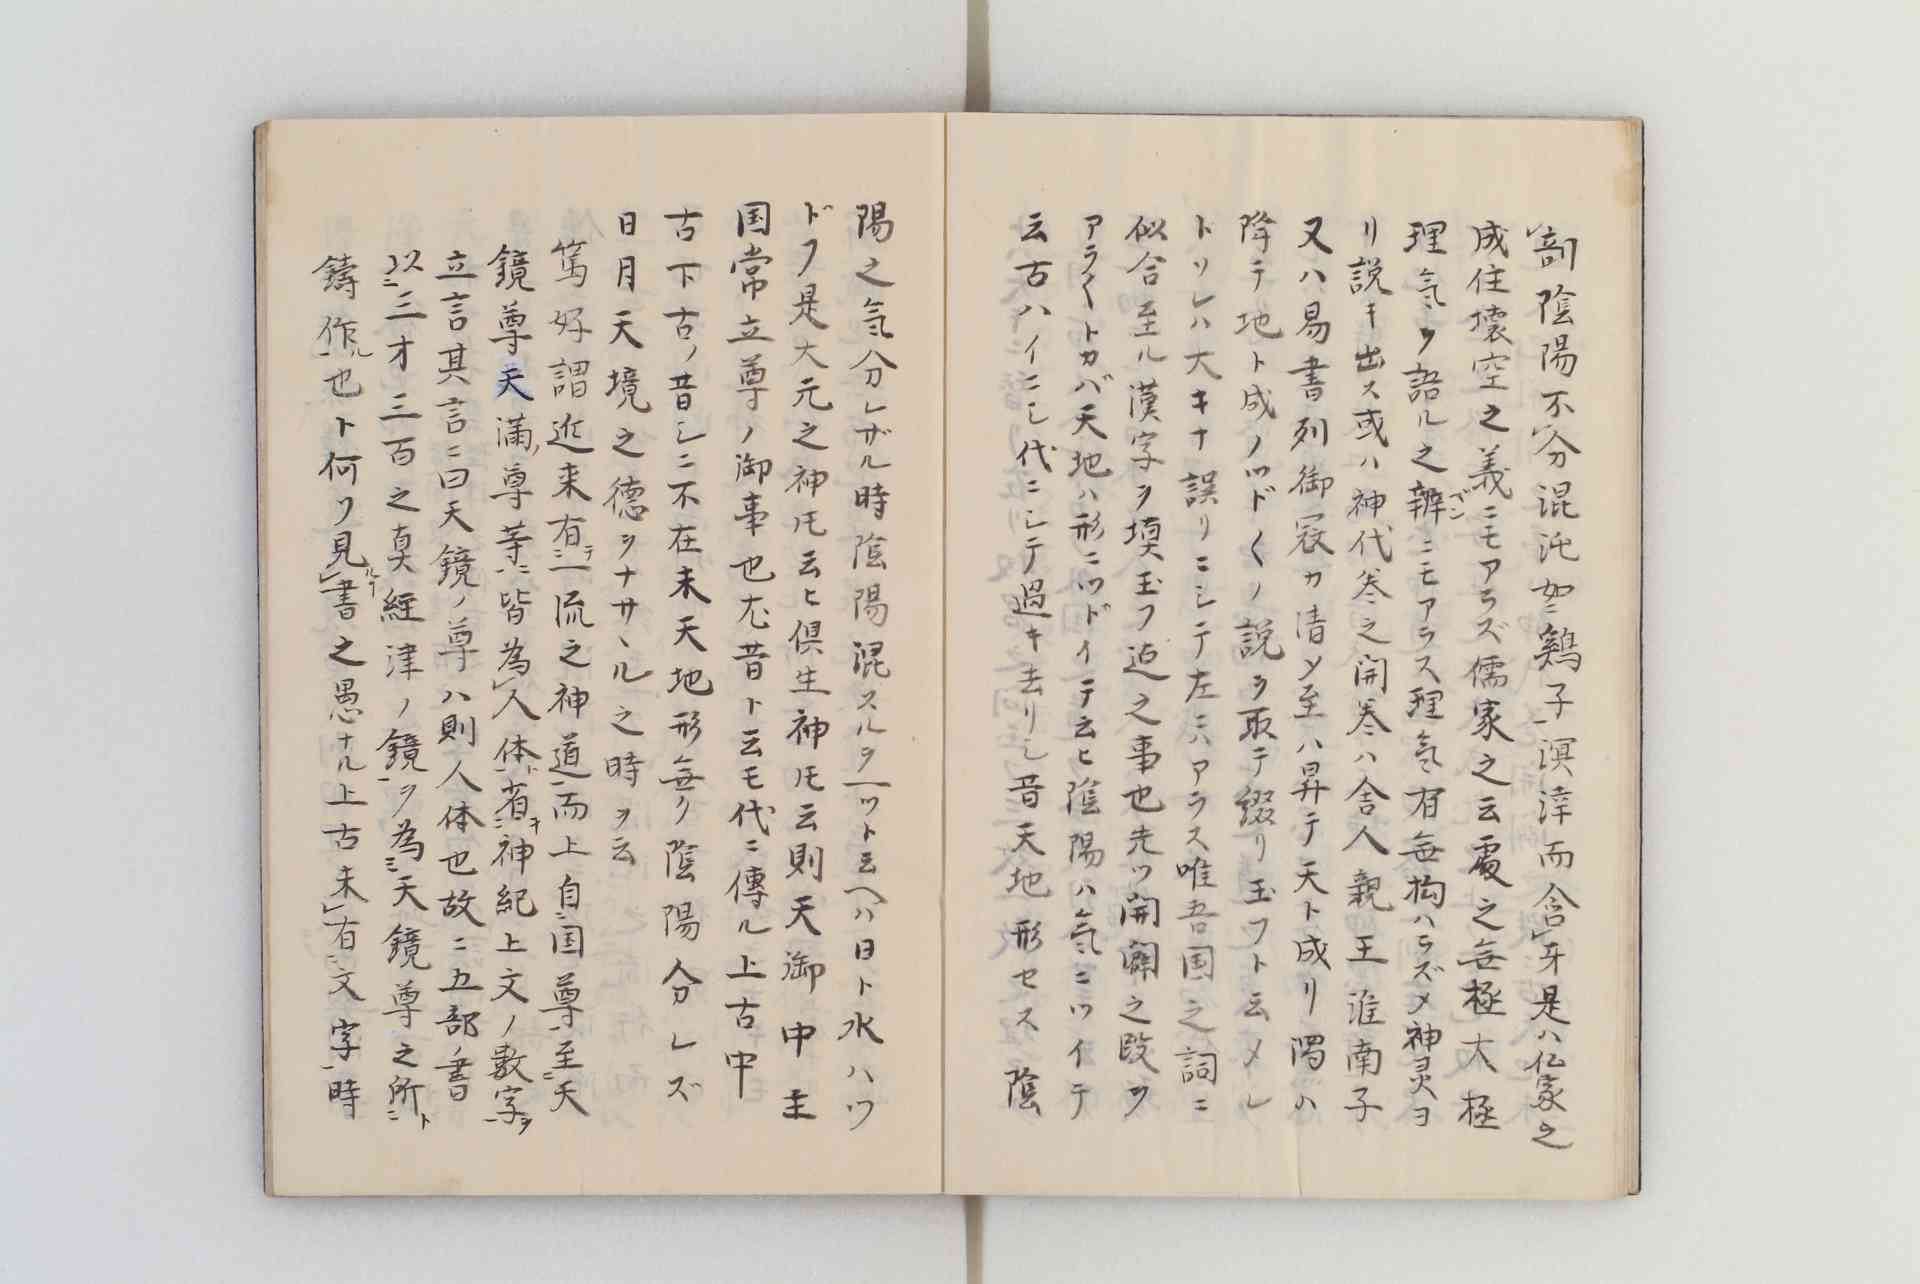 剖陰陽不分混沌如鶏子溟涬而含牙是ハ仏家之
成住壊空之義ニモアラズ儒家之云處之無極大極
理気ヲ語ル之辨ニモアラス理気有無构ハラズメ神灵ヨ
リ説キ出ス或ハ神代巻之開巻ハ舎人親王淮南子
又ハ易書列御寇カ清メ至ハ昇テ天ト成リ濁ハ
降テ地ト成ノツドくノ説ヲ取テ綴リ玉フト云メレ
トソレハ大キナ誤リニシテ左ニハアラス唯吾国之詞ニ
似合至ル漢字ヲ塡玉フ迠之事也先ツ開闢之段ヲ
アラくトカバ天地ハ形ニツドイテ云ヒ陰陽ハ気ニツイテ
云古ハイニシ代ニシテ過キ去リシ昔天地形セス陰
陽之気分レザル時陰陽混スルヲ一ツト云ヘハ日ト水ハツ
ドフ是大元之神𪜈云ヒ倶生神𪜈云則天御中主
国常立尊ノ御事也尤昔ト云モ代ニ傳ル上古中
古下古ノ昔シニ不在未天地形無ク陰陽分レズ
日月天境之德ヲナサヽル之時ヲ云
篤好謂近来有テ一流之神道而上自国尊至天
鏡尊天満尊等皆為人体省キ神紀上文ノ數字ヲ
立言其言ニ曰天鏡ノ尊ハ則人体也故ニ五部ノ書
以三才三百之真経津ノ鏡ヲ為天鏡尊之所ト
鋳作ル也ト何ソ見ルヿ書之愚ナル上古未有文字時